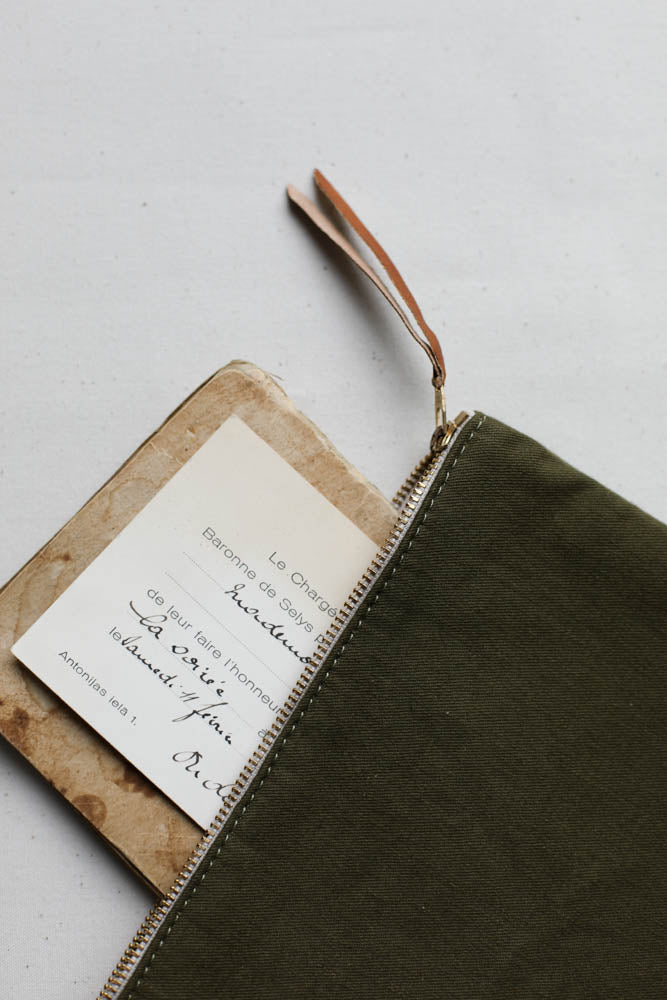 Le Chargé
Baronne de Selys p
Mademo
de leur faire l'honneur
la soirée
à
le Samedi 11 février
On da
Antonijas ielā 1.